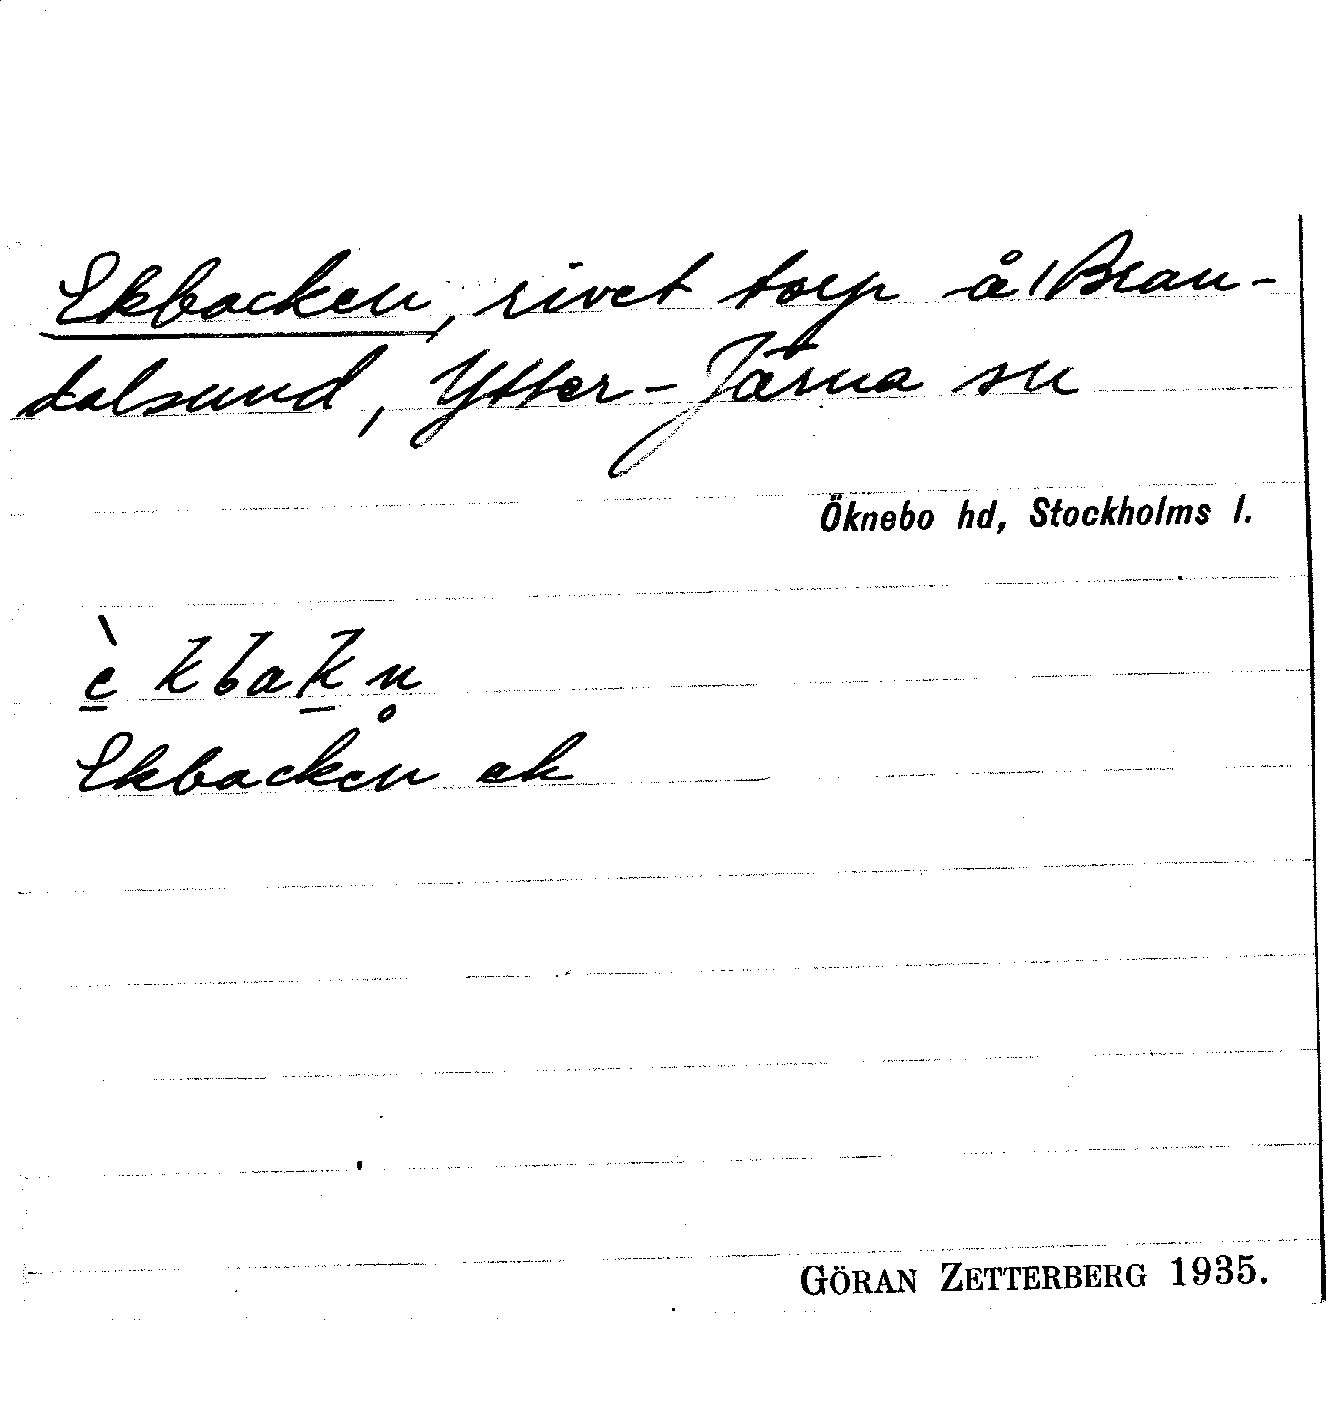 Ekbacken, rivet torp å Bran-
dalsund, Ytter-Järna sn
Öknebo hd, Stockholms l.
è̱kbaḵn̥
Ekbacken ek
GÖRAN ZETTERBERG 1935.